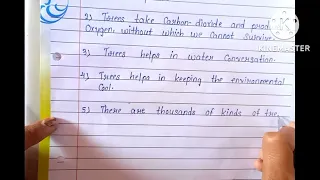 2) Trees take Carbon-dioxide and prod
Oxygen, without which we Cannot Survive.
3) Trees helps in water Conversation.
4) Trees helps in keeping the environmental
Cool.
5) There are thousands of kinds of tre
KINEMASTER